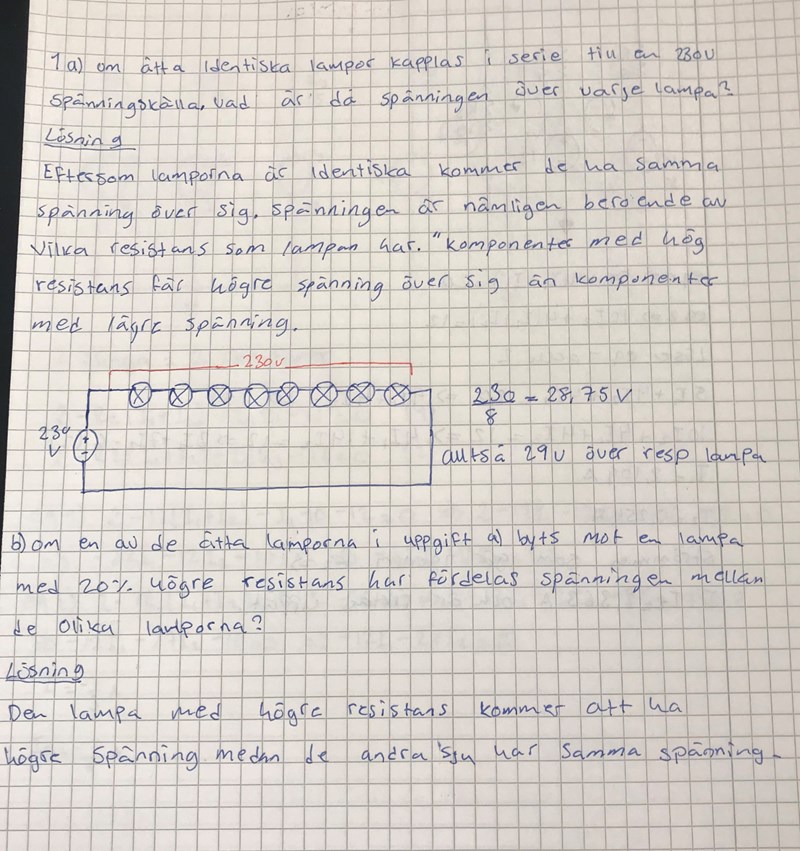 1a) om åtta Identiska lampor kapplas i serie till en 230V
spänningskälla, vad är då spänningen över varje lampa?
Lösning
Eftersom lamporna är Identiska kommer de ha samma
spänning över sig. spänningen är nämligen beroende av
vilka resistans som lampan har. "komponenter med hög
resistans får högre spänning över sig än komponenter
med lägre spänning.
230V
230 V
230/8 = 28,75 V
alltså 29V över resp lampa
b) om en av de åtta lamporna i uppgift a) byts mot en lampa
med 20% högre resistans hur fördelas spänningen mellan
de olika lamporna?
Lösning
Den lampa med högre resistans kommer att ha
högre spänning medan de andra sju har samma spänning.